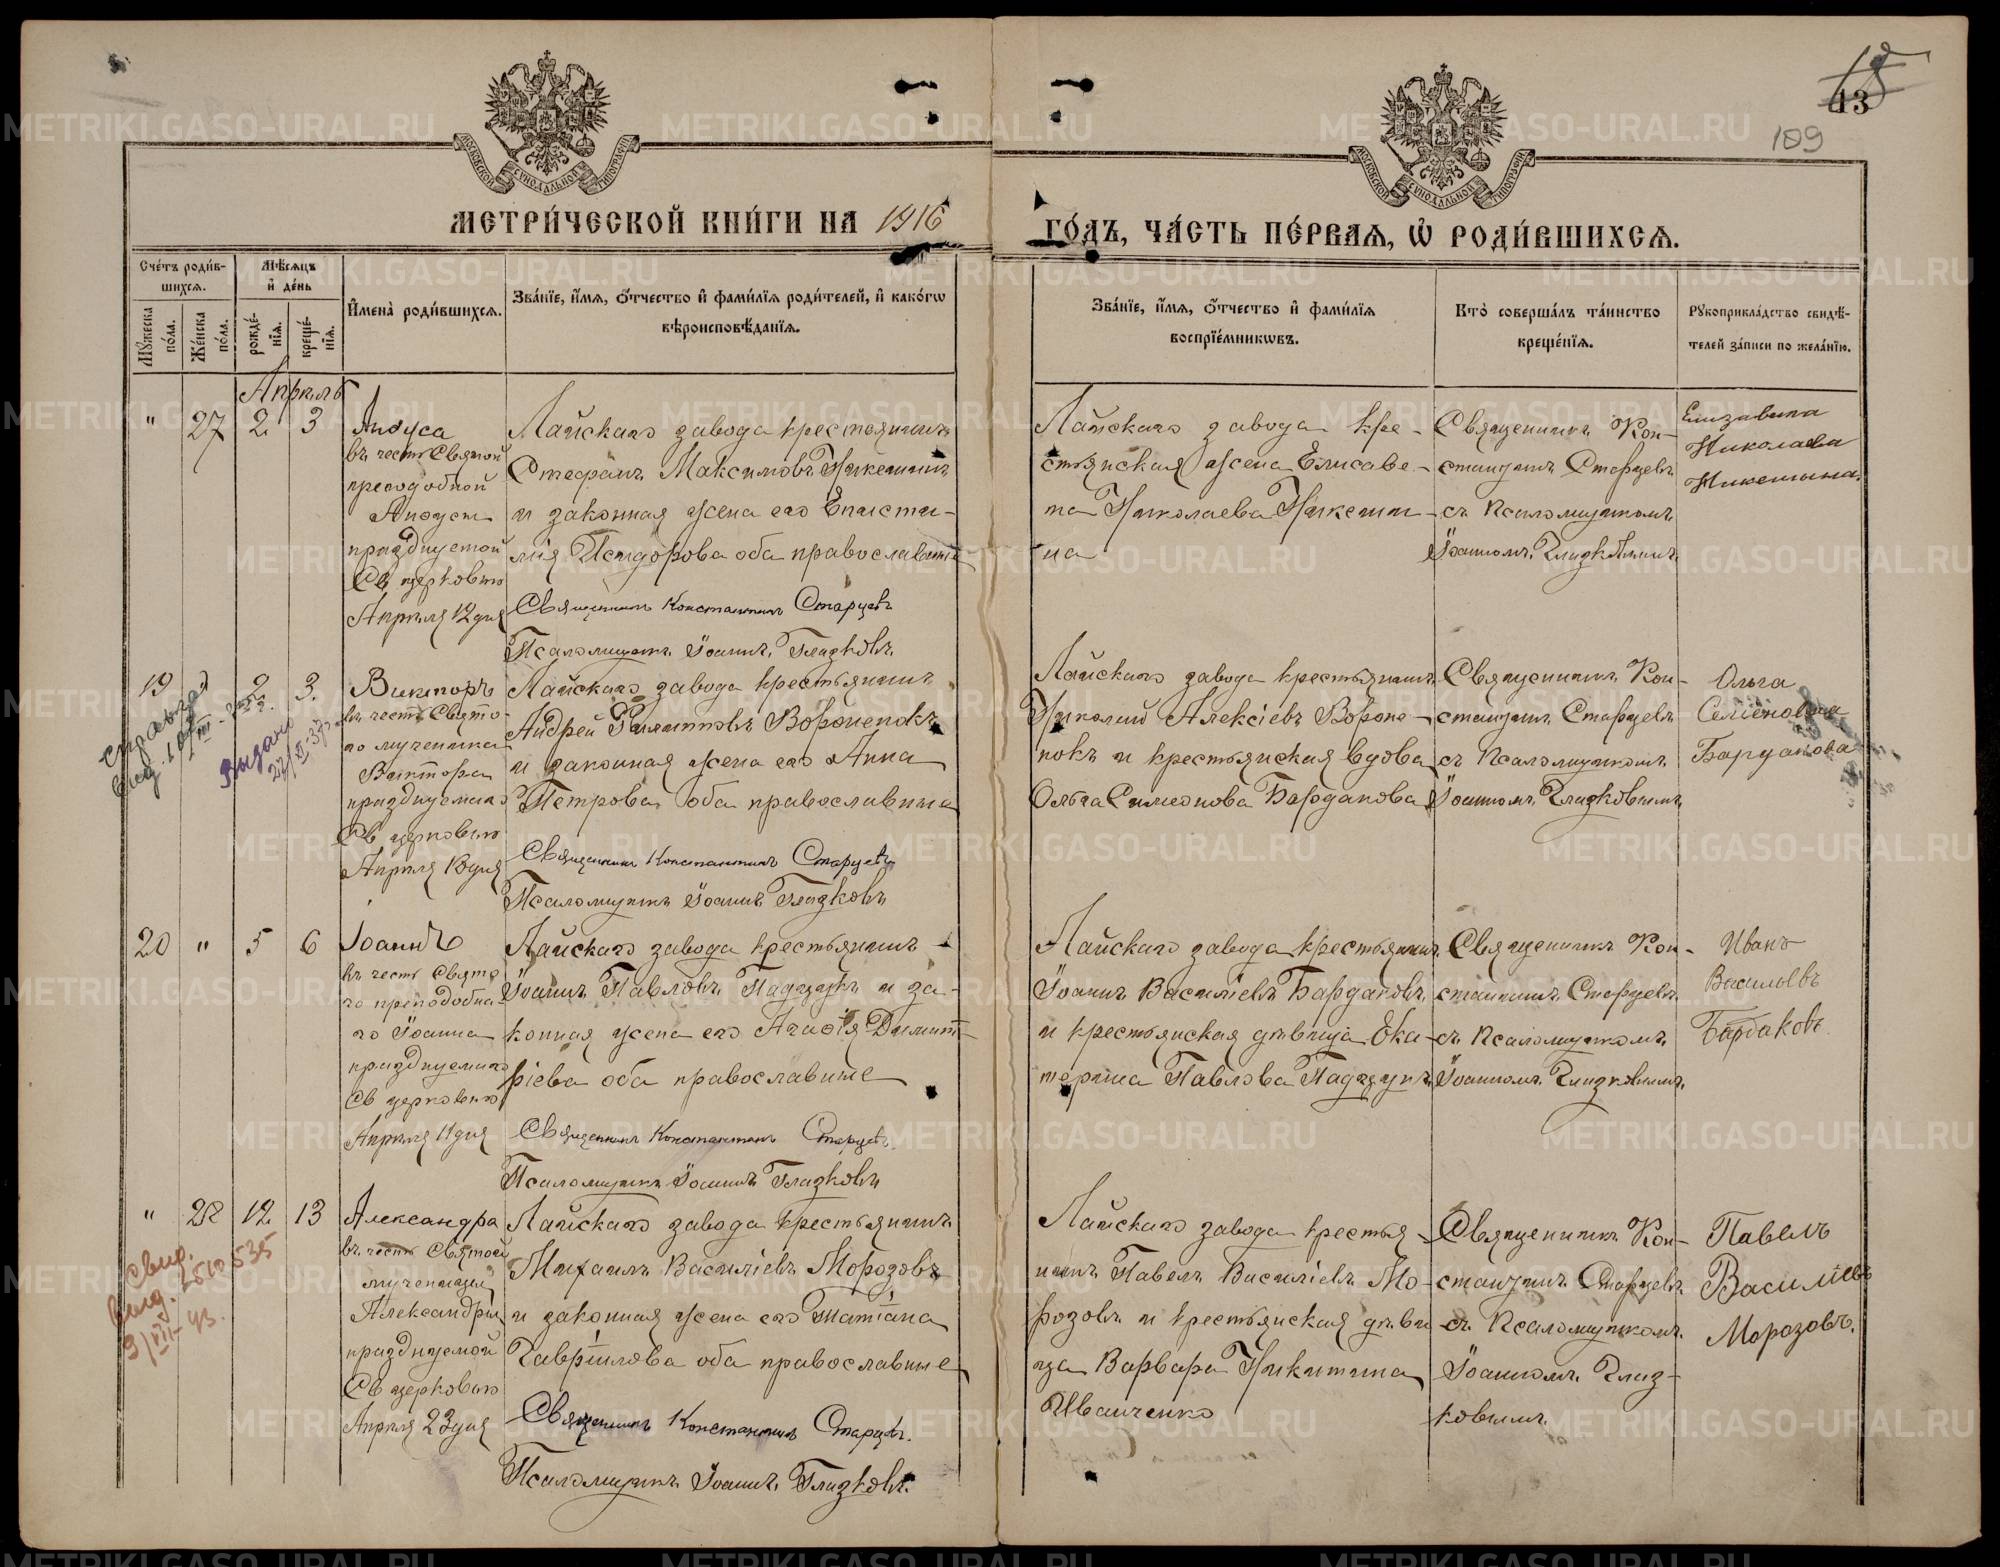 МОСКОВСКОЙ СУНОДАЛЬНОЙ ТИПОГРАФІИ
МОСКОВСКОЙ СУНОДАЛЬНОЙ ТИПОГРАФІИ
13
109
МЕТРИ́ЧЕСКОЙ КНИ́ГИ НА 1916
ГО́ДЪ, ЧА́СТЬ ПЕ́РВАѦ, Ѡ҆ РОДИ́ВШИХСѦ.
Сче́тъ роди́в-
шихсѧ.
Мѣ́сѧцъ
и҆ де́нь
И҆мена̀ роди́вшихсѧ.
Зва́нїе, и҆́мѧ, ѻ҆́тчество и҆ фами́лїѧ роди́телей, и҆ како́гѡ
вѣроисповѣ́данїѧ.
Зва́нїе, и҆́мѧ, ѻ҆́тчество и҆ фами́лїѧ
воспрїе́мникѡвъ.
Кто̀ соверша́лъ та́инство
креще́нїѧ.
Рꙋкоприкла́дство свидѣ́-
телей за́писи по жела́нїю.
Мꙋ́жеска
по́ла.
Же́нска
по́ла.
рожде́-
нїѧ.
креще́-
нїѧ.
Апрѣль
" 27 2 3
Анѳуса
въ честь Святой
преподобной
Анѳусы
празднуемой
Св церковью
Апрѣля 12 дня
Лайскаго завода крестьянинъ
Стефанъ Максимовъ Никешинъ
и законная жена его Еписти-
мія Исидорова оба православные
Священникъ Константинъ Старцевъ
Псаломщикъ Іоаннъ Гладковъ
Лайскаго завода кре-
стьянская жена Елисаве-
та Николаева Никеши-
на
Священникъ Кон-
стантинъ Старцевъ
съ псаломщикомъ
Іоанномъ Гладковымъ
Елизавета
Николаева
Никешина.
19 " 2 3.
справка
выд.
Выдано
Викторъ
въ честь Свято-
го мученика
Виктора
празднуемаго
Св церковью
Апрѣля 18 дня
Лайскаго завода крестьянинъ
Андрей Воронепокъ
и законная жена его Анна
Петрова оба православные
Священникъ Константинъ Старцевъ
Псаломщикъ Іоаннъ Гладковъ
Лайскаго завода крестьянинъ
Николай Алексіевъ Вороне-
покъ и крестьянская вдова
Ольга Симеонова Бардакова
Священникъ Кон-
стантинъ Старцевъ
съ псаломщикомъ
Іоанномъ Гладковымъ
Ольга
Семеновна
Бардакова
20 " 5 6
Іоаннъ
въ честь Свято
го преподобна-
го Іоанна
празднуемаго
Св церковью
Апрѣля 11 дня
Лайскаго завода крестьянинъ
Іоаннъ Павловъ Падчукъ и за-
конная жена его Агафія Димит-
ріева оба православные
Священникъ Константинъ Старцевъ
Псаломщикъ Іоаннъ Гладковъ
Лайскаго завода крестьянинъ
Іоаннъ Василіевъ Бардаковъ
и крестьянская дѣвица Ека-
терина Павлова Падчукъ
Священникъ Кон-
стантинъ Старцевъ
съ псаломщикомъ
Іоанномъ Гладковымъ
Иванъ
Васильевъ
Бардаковъ
" 28 12 13
свид.
выд. 2510535
3/VII-43.
Александра
въ честь Святой
мученицы
Александры
празднуемой
Св церковью
Апрѣля 23 дня
Лайскаго завода крестьянинъ
Михаилъ Василіевъ Морозовъ
и законная жена его Татіана
Гавріилова оба православные
Священникъ Константинъ Старцевъ
Псаломщикъ Іоаннъ Гладковъ
Лайскаго завода крестья-
нинъ Павелъ Василіевъ Мо-
розовъ и крестьянская дѣви
ца Варвара Никитина
Иванченко
Священникъ Кон-
стантинъ Старцевъ
съ псаломщикомъ
Іоанномъ Глад-
ковымъ
Павелъ
Василіевъ
Морозовъ.